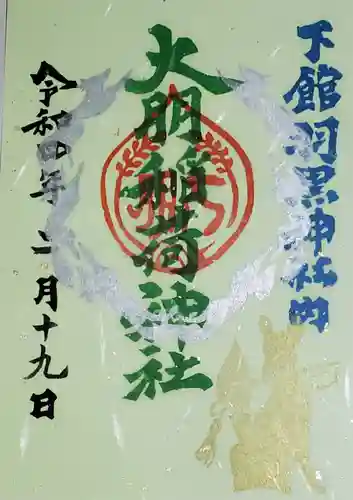 下館羽黒神社内
火明稲荷神社
令和四年二月十九日